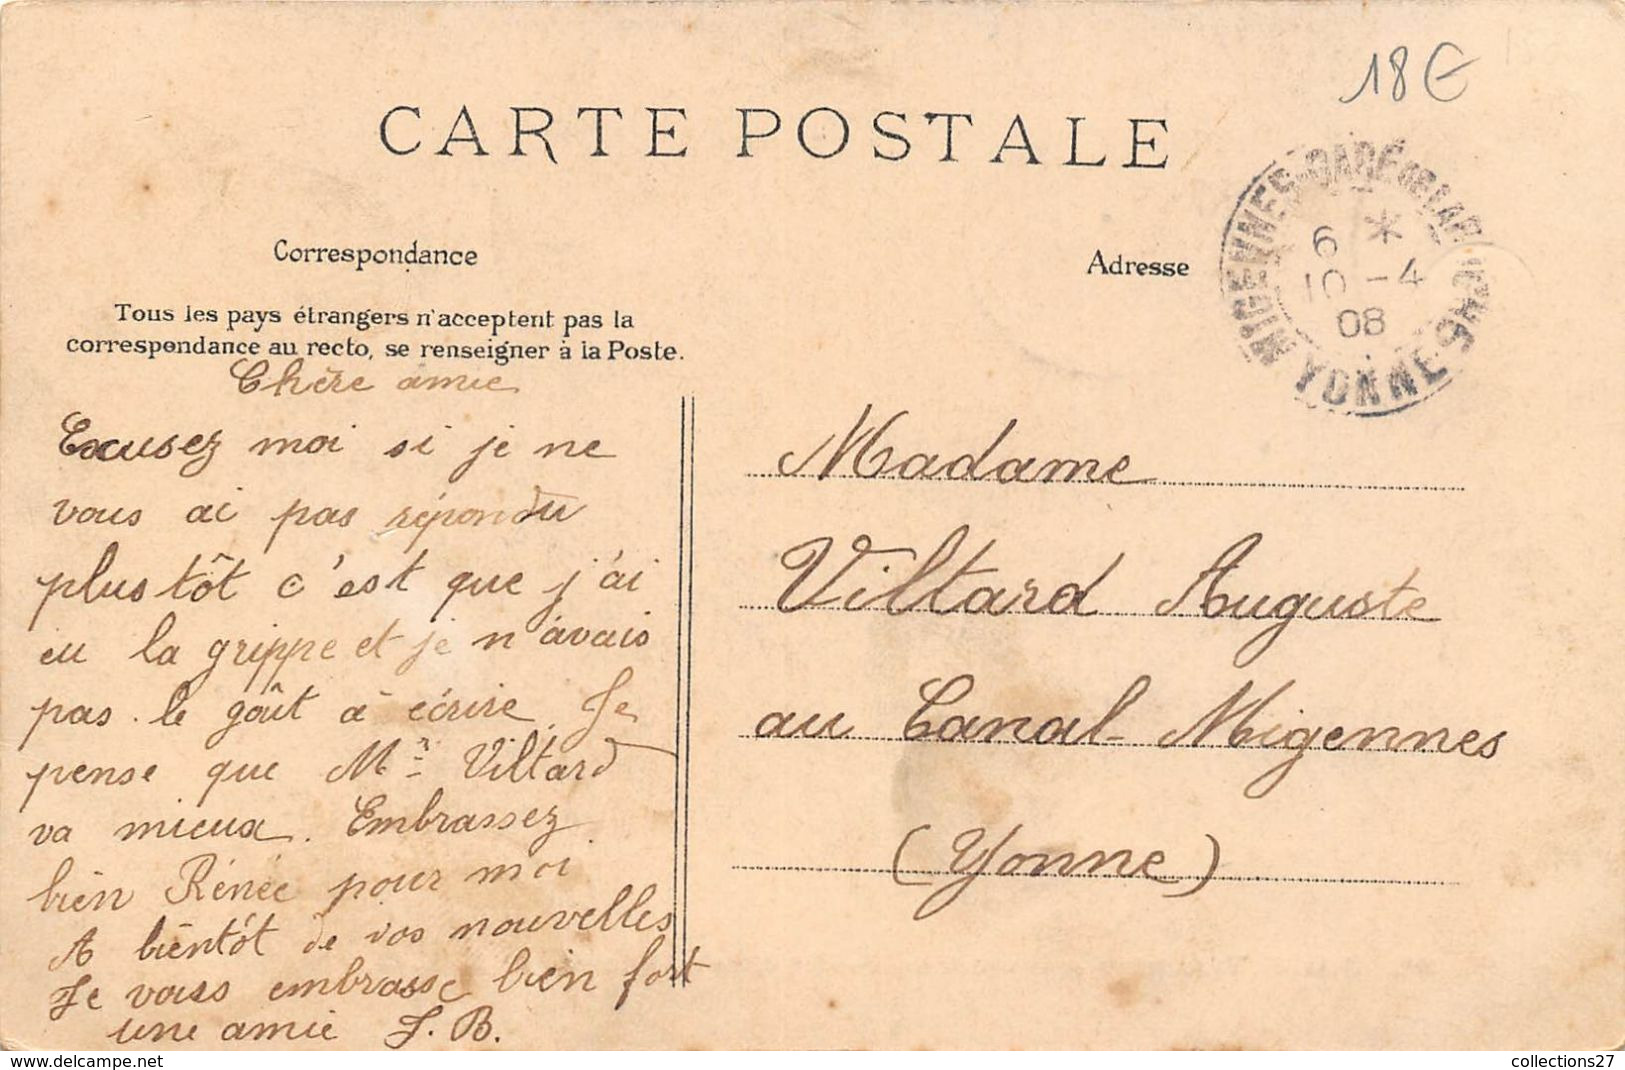 18€
CARTE POSTALE
Correspondance
Adresse
MIGENNES-GARE DE LAR YONNE
6 *
10 - 4
08
Tous les pays étrangers n'acceptent pas la
correspondance au recto, se renseigner à la Poste.
Chère amie
Excusez moi si je ne
vous ai pas répondu
plus tôt c'est que j'ai
eu la grippe et je n'avais
pas le goût à écrire. Je
pense que Mr Viltard
va mieux. Embrassez
bien Rénée pour moi
A bientôt de vos nouvelles
Je vous embrasse bien fort
une amie J. B.
Madame
Viltard Auguste
au Canal Migennes
(Yonne)
collections27